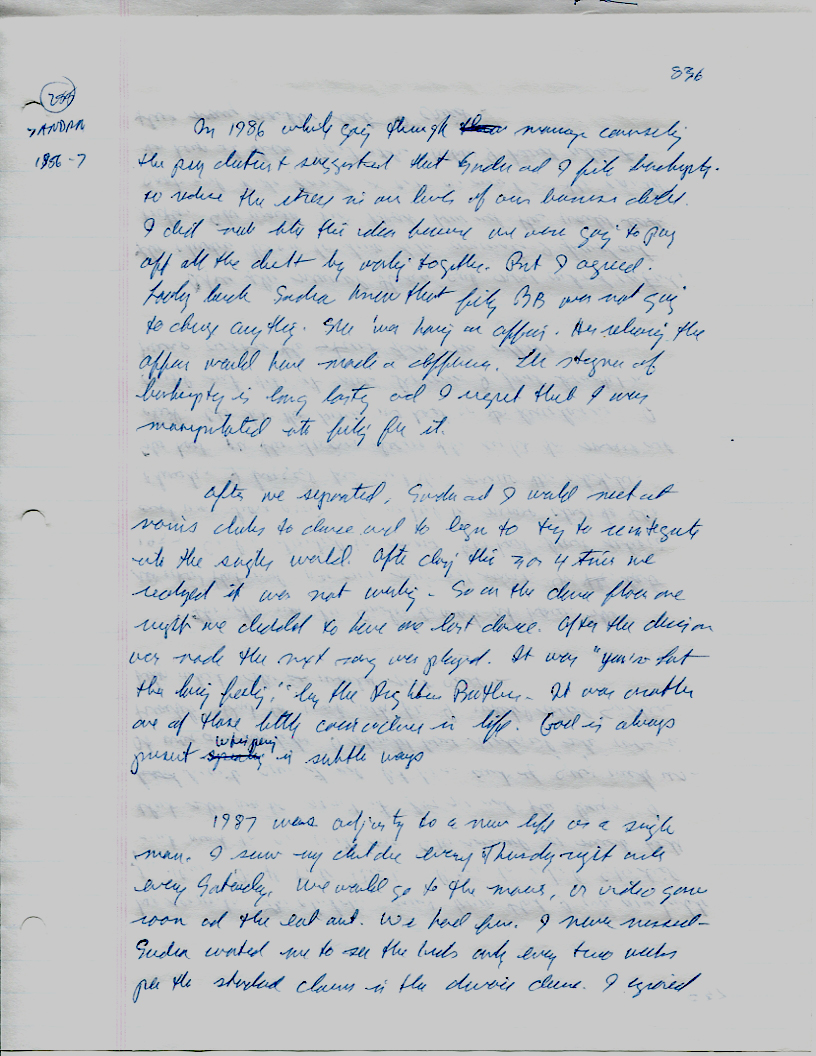 836
SANDRA
1986-7
In 1986 while going through marriage counseling
the psychiatrist suggested that Sandra and I file bankruptcy.
to reduce the stress in our lives of our business debts.
I did not like this idea because we were going to pay
off all the debt by working together. But I agreed.
Looking back Sandra knew that filing BR was not going
to change anything. She was having an affair. Her relieving the
affair would have made a difference. The stigma of
bankruptcy is long lasting and I regret that I was
manipulated into filing for it.
After we separated, Sandra and I would meet at
various clubs to dance and to begin to try to reintegrate
into the singles world. After doing this 3 or 4 times we
realized it was not working. So on the dance floor one
night we decided to have one last dance. After the decision
was made the next song was played. It was "you've lost
that loving feeling," by the Righteous Brothers. It was another
one of those little coincidences in life. God is always
present whispering in subtle ways
1987 was adjusting to a new life as a single
man. I saw my children every Thursday night and
every Saturday. We would go to the movies, or video game
room and the eat out. We had fun. I never missed.
Sandra wanted me to see the kids only every two weeks
per the standard clauses in the divorce decree. I ignored